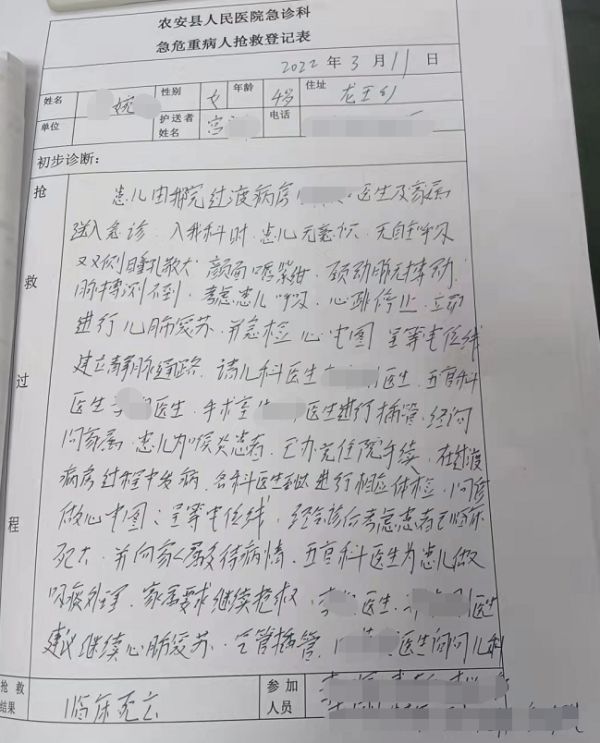 农安县人民医院急诊科
急危重病人抢救登记表
2022 年 3 月 11 日
姓名 婉 性别 女 年龄 4岁 住址 龙王乡
单位 护送者姓名 宫 电话
初步诊断:
抢救过程
患儿由我院过渡病房 医生及家属
送入急诊. 入我科时, 患儿无意识, 无自主呼吸
双侧瞳孔散大 颜面口唇紫绀, 颈动脉无搏动,
脉搏测不到, 考虑患儿呼吸, 心跳停止, 立即
进行心肺复苏. 并急检心电图 呈等电位线
建立静脉通路. 请儿科医生 医生, 五官科
医生 医生, 手术室 医生进行插管, 经询
问家属, 患儿为喉炎患者, 已办完住院手续, 在过渡
病房过程中发病, 各科医生 进行相应体检,
做心电图: 呈等电位线, 经会诊后考虑患者已临床
死亡, 并向家属交待病情, 五官科医生为患儿做
吸痰处理, 家属要求继续抢救, 李 医生. 医生
建议继续心肺复苏. 气管插管, 医生询问儿科
抢救结果 临床死亡 参加人员